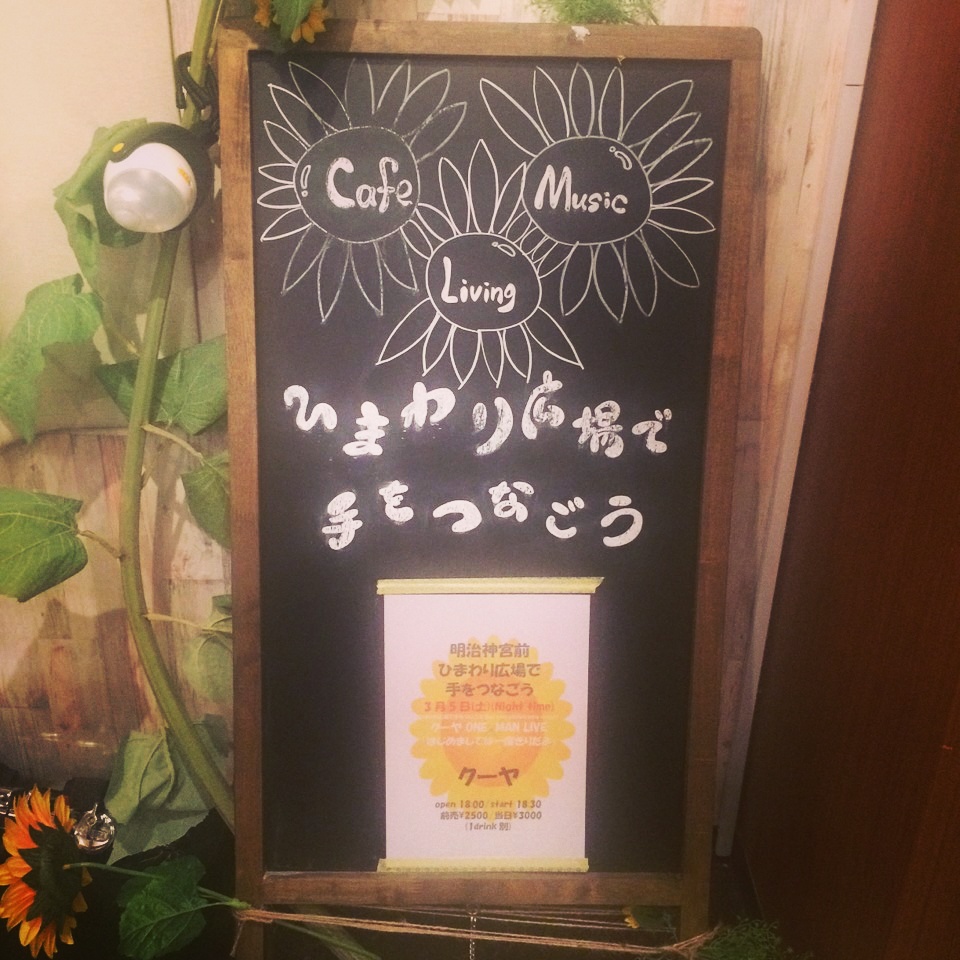 Cafe
Music
Living
ひまわり広場で
手をつなごう
明治神宮前
ひまわり広場で
手をつなごう
3月5日(土)(Night time)
クーヤ ONE MAN LIVE
クーヤ
open 18:00/start 18:30
前売¥2500/当日¥3000
(1drink 別)